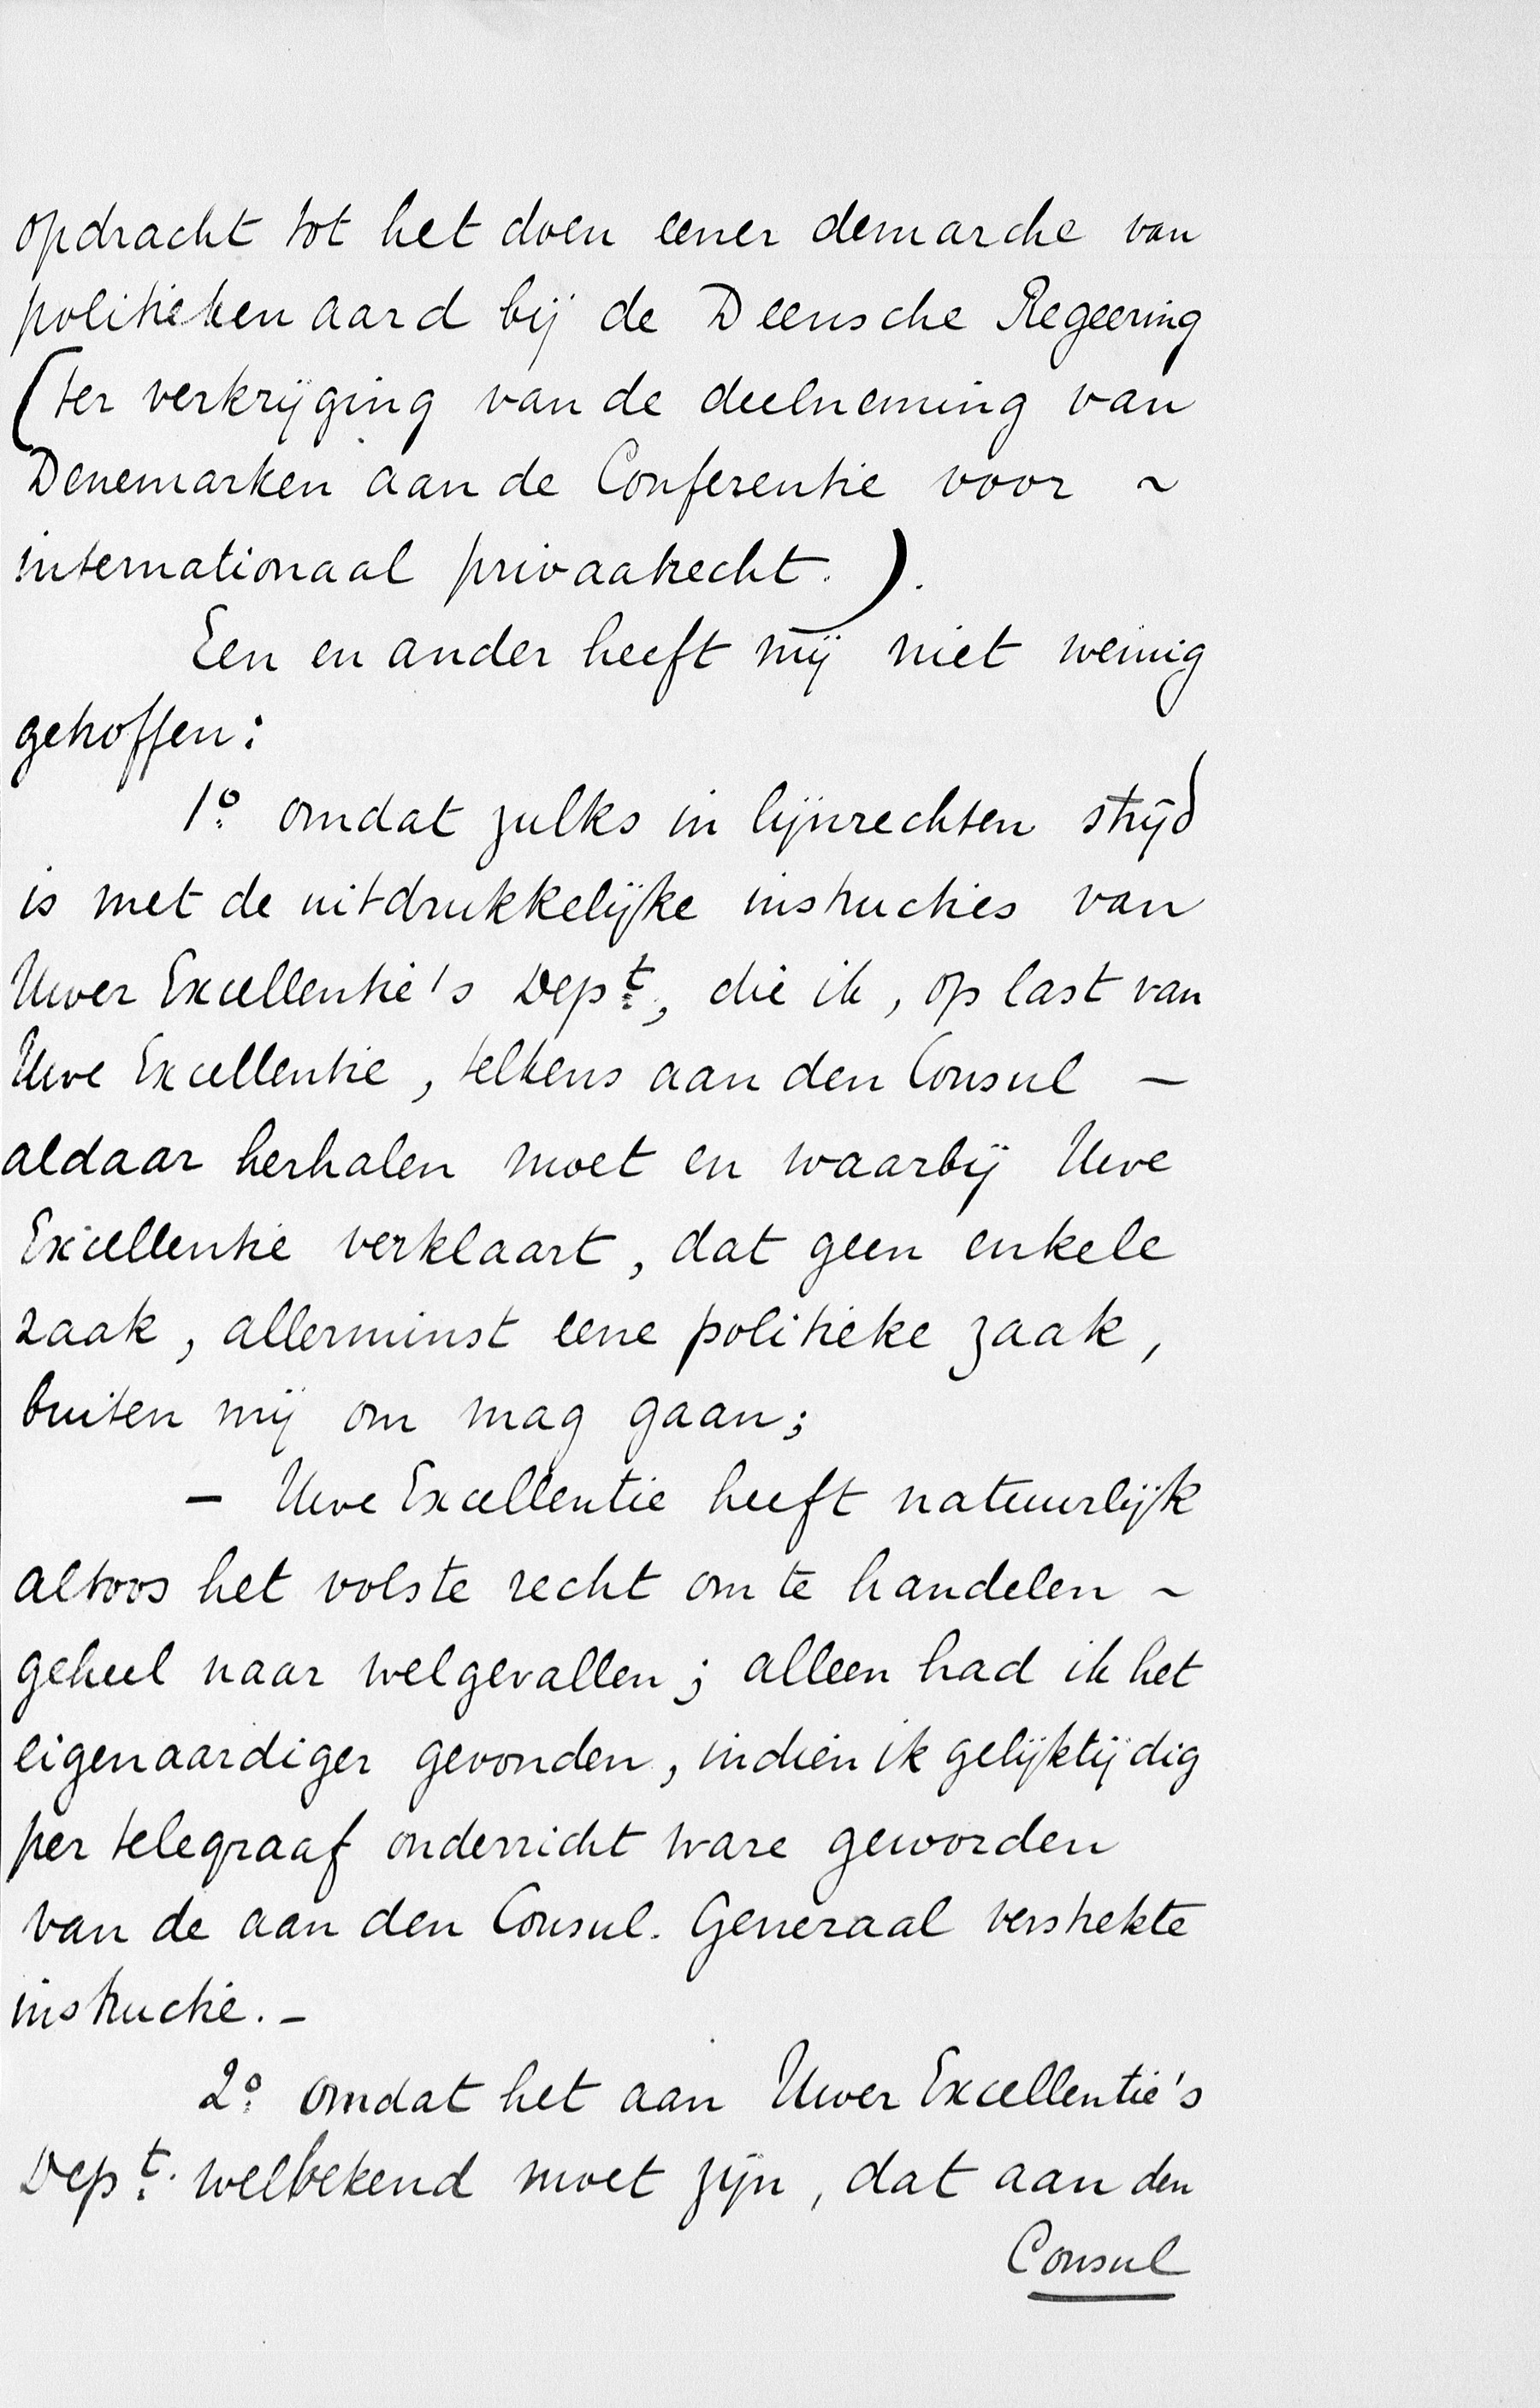 opdracht tot het doen eener demarche van
politieken aard bij de Deensche Regeering
(ter verkrijging van de deelneming van
Denemarken aan de Conferentie voor ~
internationaal privaatrecht.).
Een en ander heeft mij niet weinig
getroffen:
1º omdat zulks in lijnrechten strijd
is met de uitdrukkelijke instructies van
Uwer Excellentie's Dept, die ik, op last van
Uwe Excellentie, telkens aan den Consul —
aldaar herhalen moet en waarbij Uwe
Excellentie verklaart, dat geen enkele
zaak, allerminst eene politieke zaak,
buiten mij om mag gaan;
— Uwe Excellentie heeft natuurlijk
altoos het volste recht om te handelen ~
geheel naar welgevallen; alleen had ik het
eigenaardiger gevonden, indien ik gelijktijdig
per telegraaf onderricht ware geworden
van de aan den Consul. Generaal verstrekte
instructie. —
2º omdat het aan Uwer Excellentie's
Dept. welbekend moet zijn, dat aan den
Consul